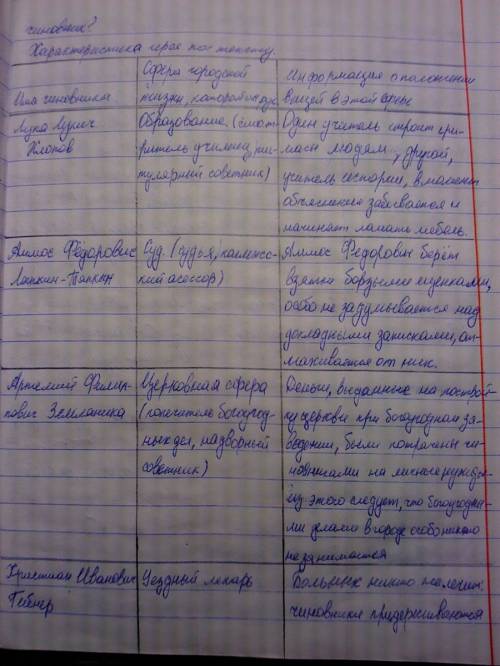 чиновник?
Характеристика героя по тексту.
Имя чиновника
Сфера городской
жизни, которой
Информация о положении
вещей в этой сфере
Лука Лукич
Хлопов
Образование. (смот-
ритель училищ, ти-
тулярный советник)
Один учитель строит гри-
масы людям, другой,
учитель истории, в момент
объяснения забывается и
начинает ломать мебель.
Аммос Фёдорович
Ляпкин-Тяпкин
Суд. (судья, коллежс-
кий асессор)
Аммос Федорович берёт
взятки борзыми щенками,
особо не задумывается над
докладными записками, от-
махивается от них.
Артемий Филип-
пович Земляника
Церковная сфера
(попечитель богоугод-
ных дел, надворный
советник)
Деньги, выданные на построй-
ку церкви при богоугодном за-
ведении, были потрачены чи-
новниками на личные нужды
из этого следует, что богоугодны-
ми делами в городе особо никто
не занимается
Христиан Иванович
Гибнер
Уездный лекарь
Больных никто не лечит:
чиновники придерживаются